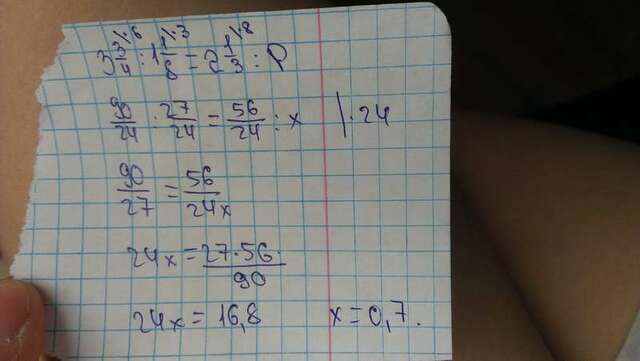 3 3/4 \·6 : 1 1/8 \·3 = 2 1/3 \·8 : P
90/24 : 27/24 = 56/24 : x | · 24
90/27 = 56/24x
24x = 27·56/90
24x = 16,8 x = 0,7.